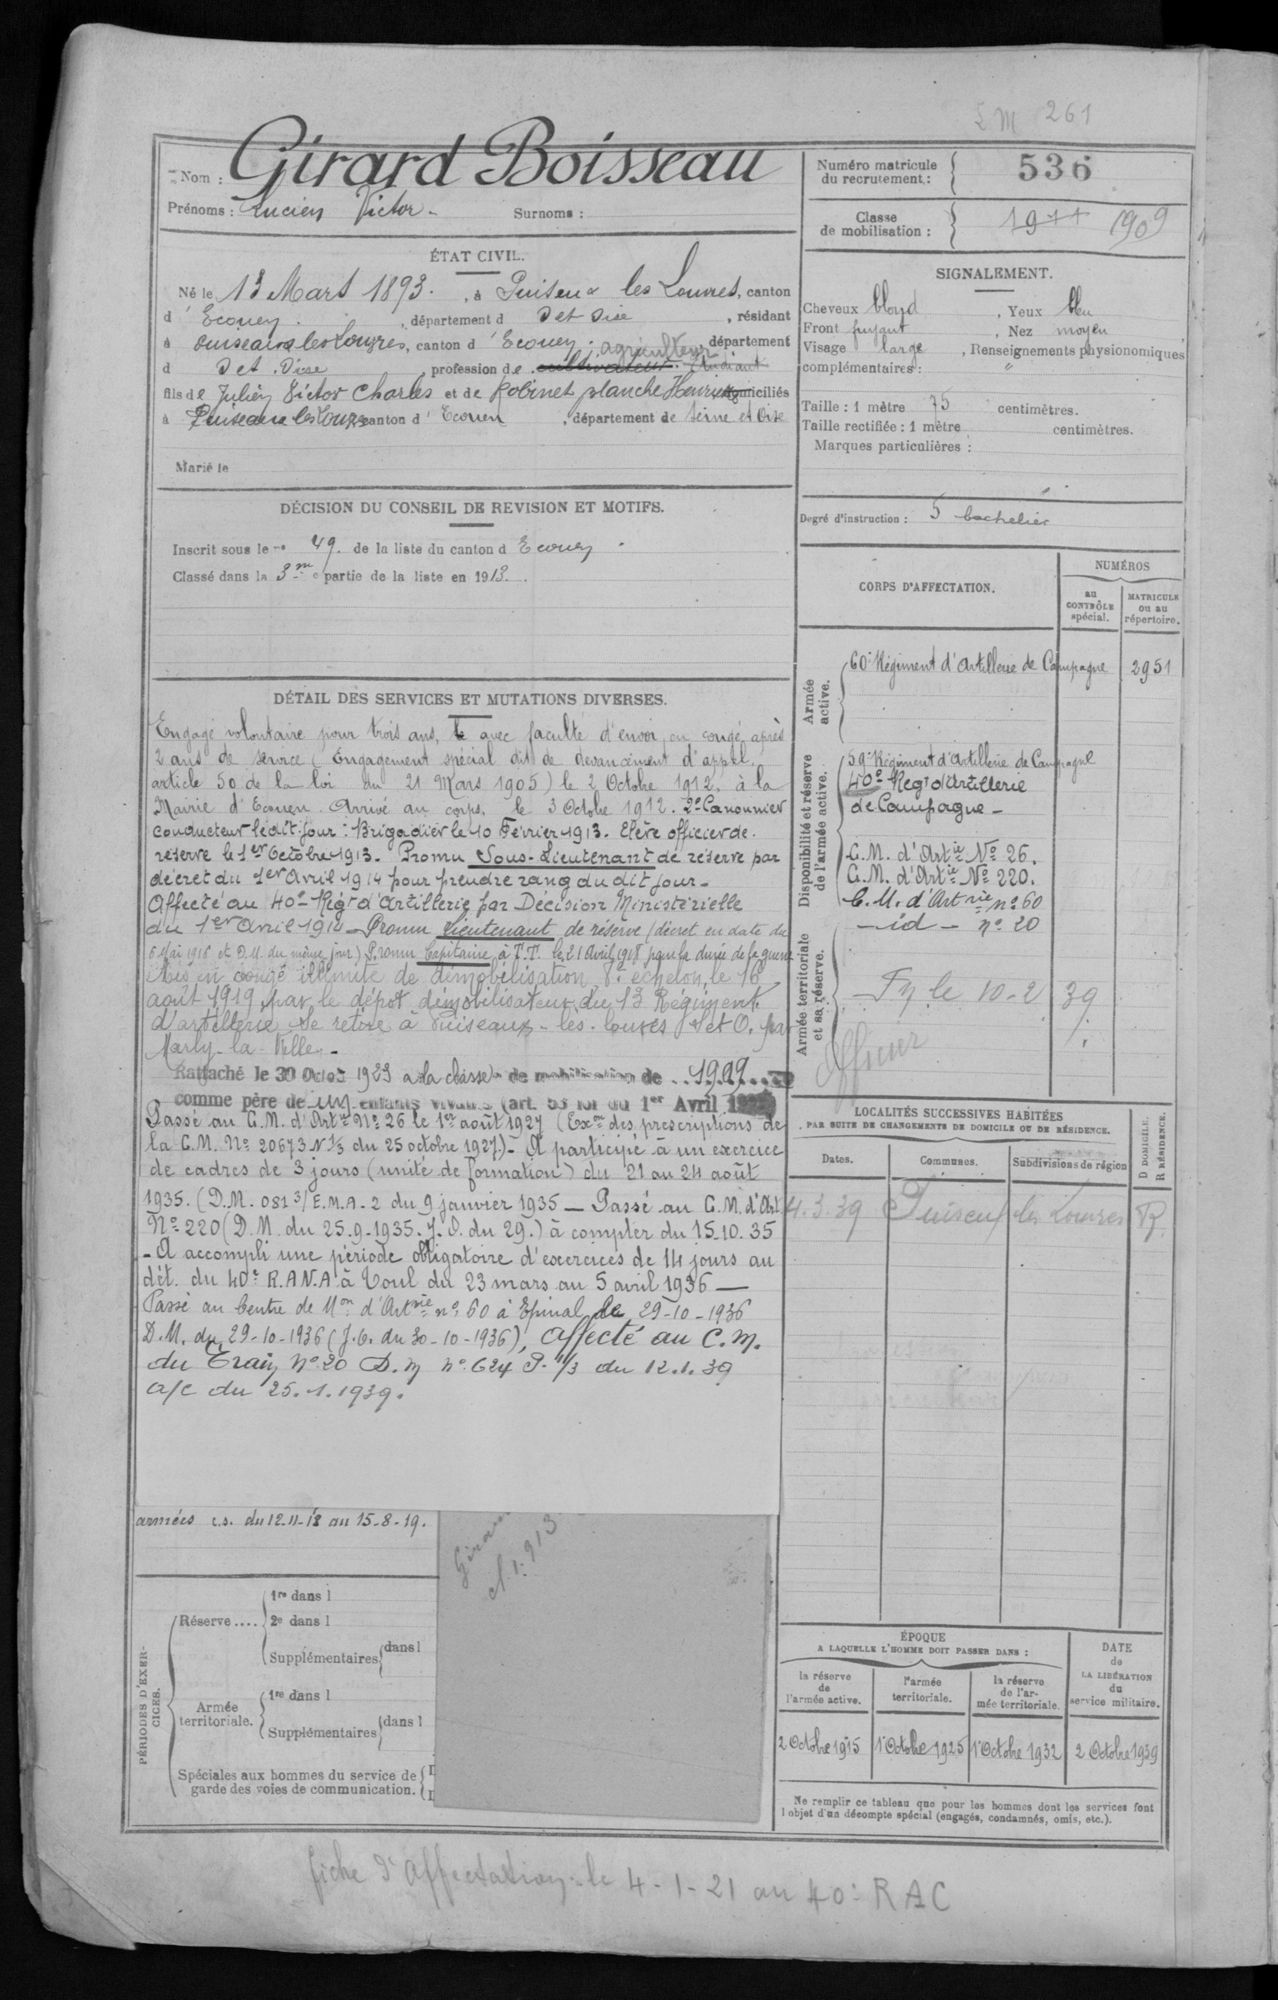 LM 261
Nom : Girard Boisseau
Prénoms : Lucien Victor - Surnoms :
Numéro matricule du recrutement : 536
Classe de mobilisation : 1909
ÉTAT CIVIL.
Né le 13 Mars 1893. , à Puiseux les Louvres, canton
d' Ecouen . , département d S et Oise , résidant
à Puiseaux les Louvres, canton d' Ecouen . département
d S et Oise profession de cultivateur. Etudiant agriculteur
fils de Julien Victor Charles et de Robinet planche Henriette domiciliés
à Puiseaux les Louvres canton d' Ecouen , département de Seine et Oise
Marié le
SIGNALEMENT.
Cheveux blond , Yeux bleu
Front fuyant , Nez moyen
Visage large , Renseignements physionomiques
complémentaires : "
Taille : 1 mètre 75 centimètres.
Taille rectifiée : 1 mètre centimètres.
Marques particulières :
Degré d'instruction : 5 bachelier
DÉCISION DU CONSEIL DE REVISION ET MOTIFS.
Inscrit sous le no 49. de la liste du canton d Ecouen .
Classé dans la 3me partie de la liste en 1913.
DÉTAIL DES SERVICES ET MUTATIONS DIVERSES.
Engagé volontaire pour trois ans, avec faculté d'envoi en congé après
2 ans de service (Engagement spécial dit de devancement d'appel,
article 50 de la loi du 21 Mars 1905) le 2 Octobre 1912, à la
Mairie d'Ecouen. Arrivé au corps, le 3 Octobre 1912. 2e Canonnier
conducteur le dit jour : Brigadier le 10 Février 1913. Elève officier de
réserve le 1er Octobre 1913. Promu Sous-Lieutenant de réserve par
décret du 1er Avril 1914 pour prendre rang du dit jour -
Affecté au 40e Régt d'Artillerie par Décision Ministérielle
du 1er Avril 1914 - Promu Lieutenant de réserve (décret en date du
6 Mai 1916 et D.M. du même jour) Promu Capitaine à T.T. le 21 Avril 1918 pour la durée de la guerre
Mis en congé illimité de démobilisation 8e échelon, le 16
août 1919 par le dépôt démobilisateur du 13 Régiment
d'artillerie Se retire à Puiseaux-les-Louvres S et O. par
Marly-la-Ville -
Rattaché le 30 Octob 1923 à la classe de mobilisation de 1909
comme père de un enfants vivants (art. 53 loi du 1er Avril 1923)
Passé au C.M. d'Artie No 26 le 1er août 1927 (Exon des prescriptions de
la C.M. No 20673 N 1/3 du 25 octobre 1927.) - A participé à un exercice
de cadres de 3 jours (unité de formation) du 21 au 24 août
1935. (D.M. 0813/E.M.A.-2 du 9 janvier 1935 — Passé au C.M. d'Art.
No 220 (D.M. du 25-9-1935. J.O. du 29.) à compter du 15-10.35
- A accompli une période obligatoire d'exercices de 14 jours au
dét. du 40e R.A.N.A à Toul du 23 mars au 5 avril 1936 —
Passé au Centre de Mon d'Artrie no 60 à Epinal le 29-10-1936
D.M. du 29-10-1936 (J.O. du 30-10-1936), affecté au C.M.
du Train No 20 D.M no 624 P. 1/3 du 12.1.39
a/c du 25.1.1939.
armées c.s. du 12-11-18 au 15-8-19.
cl 1913
PÉRIODES D'EXERCICES.
Réserve .... 1re dans l
2e dans l
Supplémentaires dans l
Armée territoriale. 1re dans l
Supplémentaires dans l
Spéciales aux hommes du service de
garde des voies de communication.
CORPS D'AFFECTATION.
NUMÉROS
au CONTRÔLE spécial.
MATRICULE ou au répertoire.
Armée active.
60e Régiment d'Artillerie de Campagne 2951
Disponibilité et réserve de l'armée active.
59e Régiment d'Artillerie de Campagne
40e Régt d'Artillerie
de Campagne -
C.M. d'Artie No 26.
C.M. d'Artie No 220.
C.M. d'Artrie no 60
— id — no 20
Armée territoriale et sa réserve.
Fy le 10-2 39
Officier
LOCALITÉS SUCCESSIVES HABITÉES
PAR SUITE DE CHANGEMENTS DE DOMICILE OU DE RÉSIDENCE.
Dates. Communes. Subdivisions de région
D DOMICILE. R RÉSIDENCE.
4.3.39 Puiseux les Louvres R
ÉPOQUE
A LAQUELLE L'HOMME DOIT PASSER DANS :
la réserve de l'armée active.
l'armée territoriale.
la réserve de l'armée territoriale.
DATE de LA LIBÉRATION du service militaire.
2 Octobre 1915 1 Octobre 1925 1 Octobre 1932 2 Octobre 1939
Ne remplir ce tableau que pour les hommes dont les services font
l'objet d'un décompte spécial (engagés, condamnés, omis, etc.).
fiche d'affectation le 4-1-21 au 40e RAC